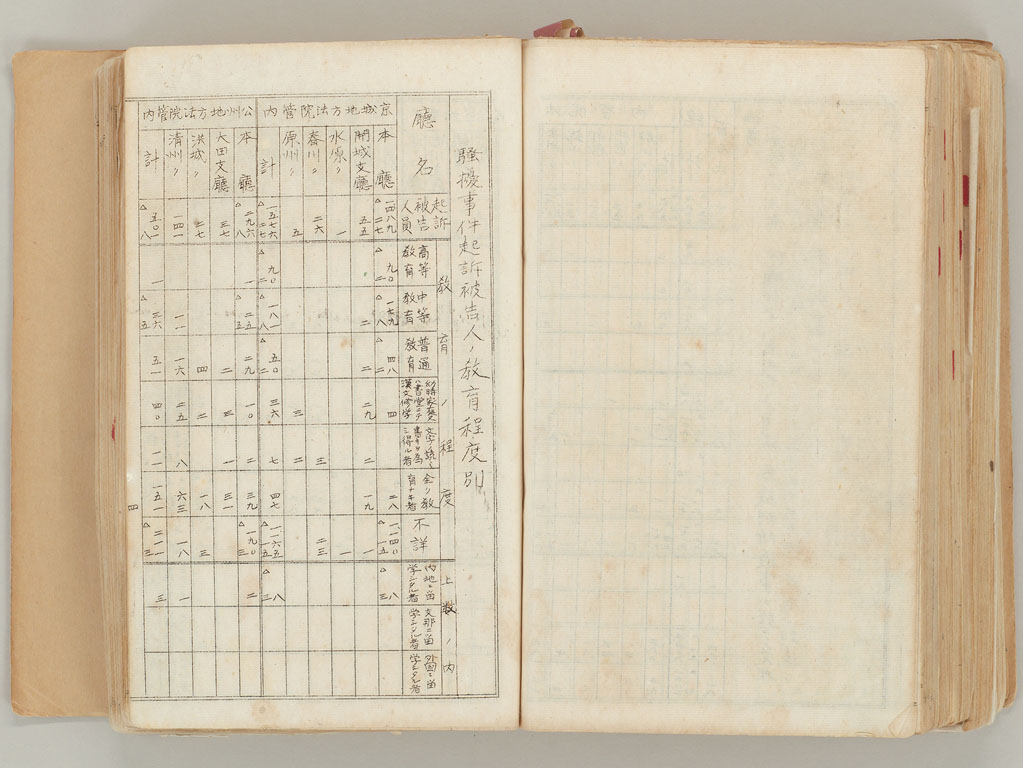 騒擾事件起訴被告人ノ教育程度別
教育ノ程度
上数ノ内
廳名
起訴被告人員
高等教育
中等教育
普通教育
漢文修学
全ク教育ナキ者
不詳
内地ニ留学シタル者
支那ニ留学シタル者
外国ニ留学シタル者
京城地方法院管内
本廳 一四八九 △二七 九〇 △二 一七九 △八 四八 △二 四 二八 一、一四〇 △一五 八 △三
開城支廳 五五 二 二 二九 二 一九 一
水原〃 一 一
春川〃 二六 三 二三
原州〃 五 三 二
計 一五七六 △二七 九〇 △二 一八一 △八 五〇 三六 七 四七 一一六五 △一五 八 △三
公州地方法院管内
本廳 二九六 △八 一 二五 △五 二九 一〇 二 三九 一九〇 △三 二
大田支廳 三七 二 三 一 三一
洪城〃 二七 四 二 一八 三
清州〃 一四一 一一 一六 二五 八 六三 一八 一
計 五〇一 △八 一 三六 △五 五一 四〇 一一 一五一 二一一 △三 三